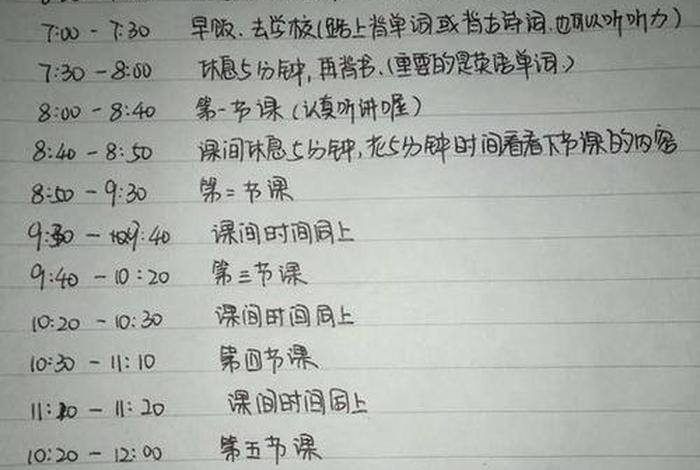 7:00 - 7:30 早饭、去学校(路上背单词或背古诗词.也可以听听力)
7:30 - 8:00 休息5分钟,再背书.(重要的是英语单词.)
8:00 - 8:40 第一节课(认真听讲喔)
8:40 - 8:50 课间休息5分钟,花5分钟时间看看下节课的内容
8:50 - 9:30 第二节课
9:30 - 9:40 课间时间同上
9:40 - 10:20 第三节课
10:20 - 10:30 课间时间同上
10:30 - 11:10 第四节课
11:10 - 11:20 课间时间同上
10:20 - 12:00 第五节课